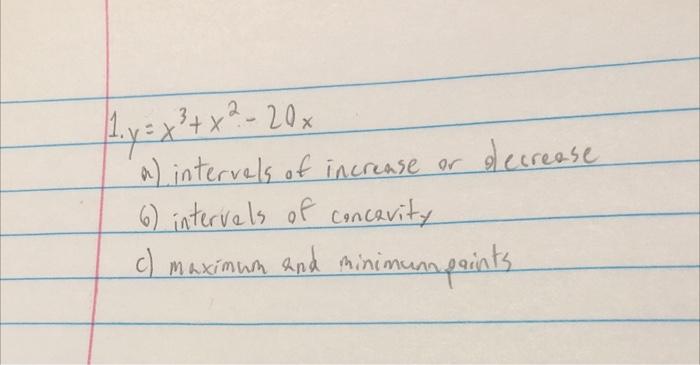 1. y = x³ + x² - 20x
a) intervals of increase or decrease
b) intervals of concavity
c) maximum and minimum points